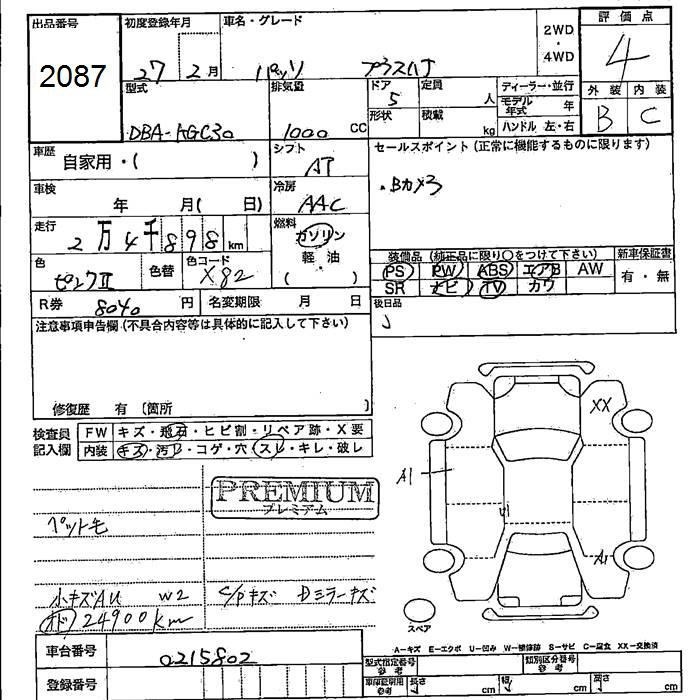 出品番号
2087
初度登録年月
27 2月
車名・グレード
パッソ プラスハナ
2WD
・
4WD
評価点
4
外装 内装
B C
型式
DBA-KGC30
排気量
1000 CC
ドア
5
形状
定員
人
積載
kg
ディーラー・並行
モデル年式 年
ハンドル 左・右
車歴
自家用・( )
シフト
AT
セールスポイント(正常に機能するものに限ります)
・Bカメラ
車検
年 月( 日)
冷房
AAC
走行
2万4千898km
燃料
ガソリン
軽油
( )
色
ピンクII
色替
色コード
X82
装備品(純正品に限り○をつけて下さい)
PS PW ABS エアB AW
SR ナビ TV カワ
新車保証書
有・無
R券 8040 円
名変期限 月 日
後日品
注意事項申告欄(不具合内容等は具体的に記入して下さい)
修復歴 有 〔箇所 〕
検査員記入欄
FW キズ・飛石・ヒビ割・リペア跡・X要
内装 キズ・汚レ・コゲ・穴・スレ・キレ・破レ
PREMIUM
プレミアム
ペットモ
小キズAU W2 C/Pキズ Dミラーキズ
オド 24900km
XX
A1
U1
A1
スペア
A-キズ E-エクボ U-凹み W-補修跡 S-サビ C-腐食 XX-交換済
車台番号
0215802
登録番号
型式指定番号 参考
類別区分番号 参考
車庫証明用 参考
長さ cm
幅 cm
高さ cm